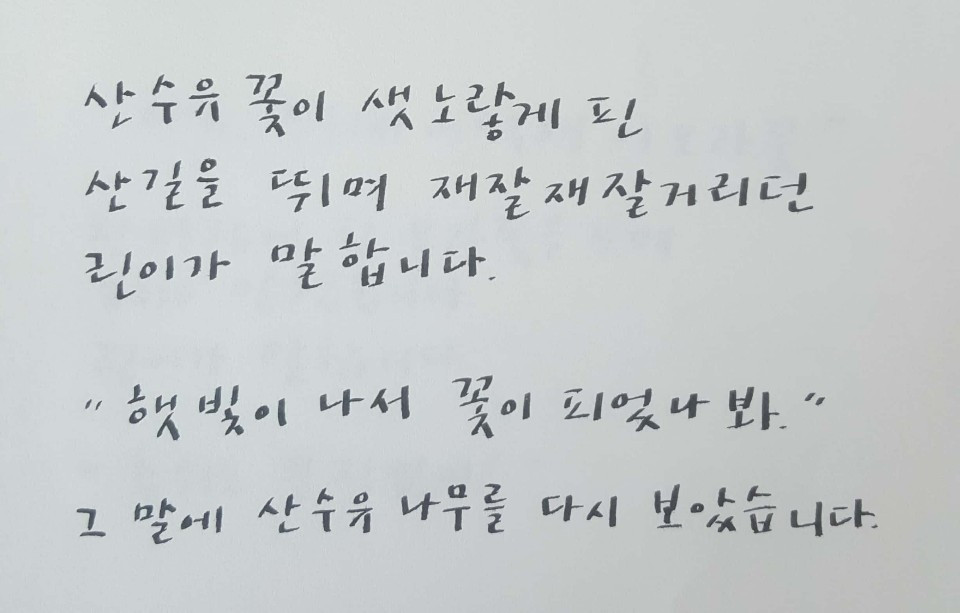 산수유 꽃이 샛노랗게 핀
산길을 뛰며 재잘재잘거리던
린이가 말합니다.
"햇빛이 나서 꽃이 피었나 봐."
그 말에 산수유 나무를 다시 보았습니다.